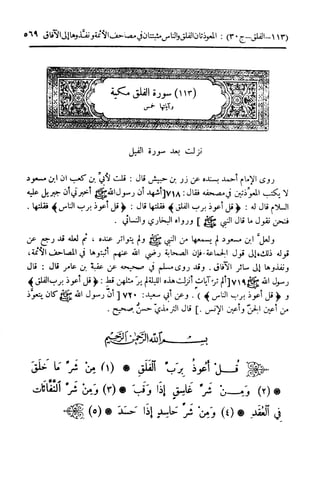 (١١٣ - الفلق - ج ٣٠) : المعوذتان الفلق والناس مثبتتان في مصاحف الأئمة ونفذوها إلى الآفاق ٥٦٩
(١١٣) سورة الفلق مكية
وآياتها خمس
نزلت بعد سورة الفيل
روى الإمام أحمد بسنده عن زر بن حبيش قال : قلت لأبيّ بن كعب ان ابن مسعود
لا يكتب المعوّذتين في مصحفه فقال : ٧١٨[أشهد أن رسول الله ﷺ أخبرني أن جبريل عليه
السلام قال له : ﴿ قل أعوذ برب الفلق ﴾ فقلتها قال : ﴿ قل أعوذ برب الناس ﴾ فقلتها .
فنحن نقول ما قال النبي ﷺ ] ورواه البخاري والنسائي .
ولعلّ ابن مسعود لم يسمعها من النبي ﷺ ولم يتواتر عنده ، ثم لعله قد رجع عن
قوله ذلك إلى قول الجماعة فإن الصحابة رضي الله عنهم أثبتوها في المصاحف الأئمة،
ونفذوها إلى سائر الآفاق . وقد روى مسلم في صحيحه عن عقبة بن عامر قال : قال
رسول الله ﷺ ٧١٩[ألم تر آيات أنزلت هذه الليلة لم ير مثلهن قط : ﴿ قل أعوذ برب الفلق ﴾
و ﴿ قل أعوذ برب الناس ﴾ ) . وعن أبي سعيد: ٧٢٠[ أنّ رسول الله ﷺ كان يتعوّذ
من أعين الجنّ وأعين الإنس .] قال الترمذيّ حسنٌ صحيح .
بِسْمِ اللهِ الرَّحْمٰنِ الرَّحِيمِ
قُلْ أَعُوذُ بِرَبِّ الْفَلَقِ * (١) مِنْ شَرِّ مَا خَلَقَ
* (٢) وَمِنْ شَرِّ غَاسِقٍ إِذَا وَقَبَ * (٣) وَمِنْ شَرِّ النَّفَّاثَاتِ
فِي الْعُقَدِ * (٤) وَمِنْ شَرِّ حَاسِدٍ إِذَا حَسَدَ * (٥)